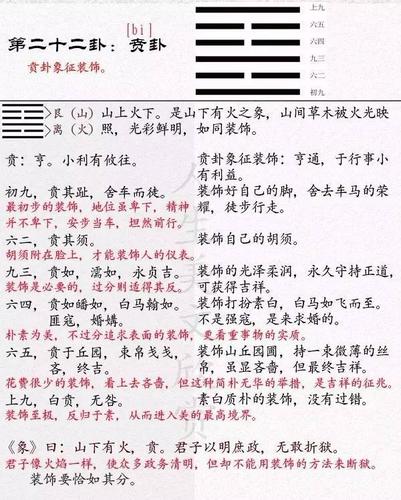 [bì]
第二十二卦：贲卦
贲卦象征装饰。
上九
六五
六四
九三
六二
初九
艮（山）山上火下。是山下有火之象，山间草木被火光映
离（火）照，光彩鲜明，如同装饰。
贲：亨。小利有攸往。
贲卦象征装饰：亨通，于行事小
有利益。
初九，贲其趾，舍车而徒。
装饰好自己的脚，舍去车马的荣
耀，徒步行走。
最初步的装饰，地位虽卑下，精神
并不卑下，安步当车，坦然前行。
六二，贲其须。
装饰自己的胡须。
胡须附在脸上，才能装饰人的仪表。
九三，贲如，濡如，永贞吉。
装饰的光泽柔润，永久守持正道，
可获得吉祥。
装饰是必要的，过分则适得其反。
六四，贲如皤如，白马翰如。
匪寇，婚媾。
装饰打扮素白，白马如飞而至。
不是强寇，是来求婚的。
朴素为美，不过分追求表面的装饰，更看重事物的实质。
六五，贲于丘园，束帛戋戋，
吝，终吉。
装饰山丘园圃，持一束微薄的丝
帛，虽显吝啬，但最终吉祥。
花费很少的装饰，看上去吝啬，但这种简朴无华的举措，是吉祥的征兆。
上九，白贲，无咎。
素白质朴的装饰，没有过错。
装饰至极，反归于素，从而进入美的最高境界。
《象》曰：山下有火，贲。君子以明庶政，无敢折狱。
君子像火焰一样，使众多政务清明，但却不能用装饰的方法来断狱。
装饰要恰如其分。